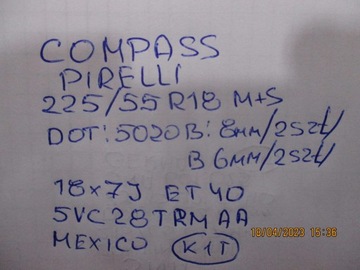 COMPASS
PIRELLI
225/55 R18 M+S
DOT: 5020 B: 8mm/2szt/
B 6mm/2szt/
18x7J ET 40
5VC28TRMAA
MEXICO K1T
18/04/2023 15:36